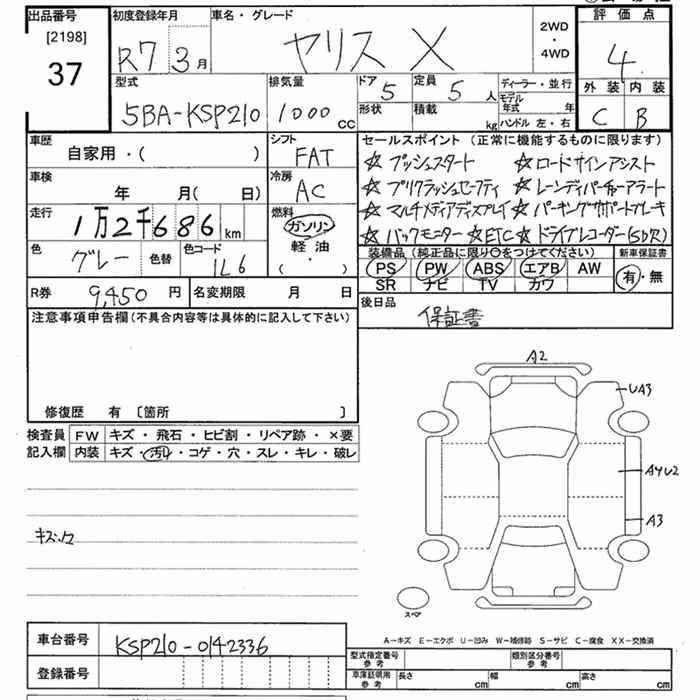 出品番号
[2198]
37
初度登録年月
R7 3月
車名・グレード
ヤリス X
2WD
・
4WD
評価点
4
外装 内装
C B
型式
5BA-KSP210
排気量
1000 cc
ドア 5
定員 5 人
形状
積載 kg
ディーラー・並行
モデル年式 年
ハンドル 左・右
車歴
自家用・( )
シフト
FAT
車検
年 月( 日)
冷房
AC
走行
1万2千686 km
燃料
ガソリン
軽油
・
( )
色
グレー
色替
色コード
1L6
R券 9,450 円
名変期限 月 日
セールスポイント (正常に機能するものに限ります)
☆ プッシュスタート ☆ ロードサインアシスト
☆ プリクラッシュセーフティ ☆ レーンディパーチャーアラート
☆ マルチメディアディスプレイ ☆ パーキングサポートブレーキ
☆ バックモニター ☆ ETC ☆ ドライブレコーダー(SD欠)
装備品 (純正品に限り○をつけてください)
新車保証書
PS PW ABS エアB AW
SR ナビ TV カワ
有・無
後日品
保証書
注意事項申告欄(不具合内容等は具体的に記入して下さい)
修復歴 有 〔箇所 〕
検査員
記入欄
FW キズ・飛石・ヒビ割・リペア跡・×要
内装 キズ・汚レ・コゲ・穴・スレ・キレ・破レ
A2
UA3
AYU2
A3
スペア
A-キズ E-エクボ U-凹み W-補修跡 S-サビ C-腐食 XX-交換済
車台番号
KSP210-0142336
登録番号
型式指定番号
参考
類別区分番号
参考
車庫証明用
参考
長さ cm
幅 cm
高さ cm